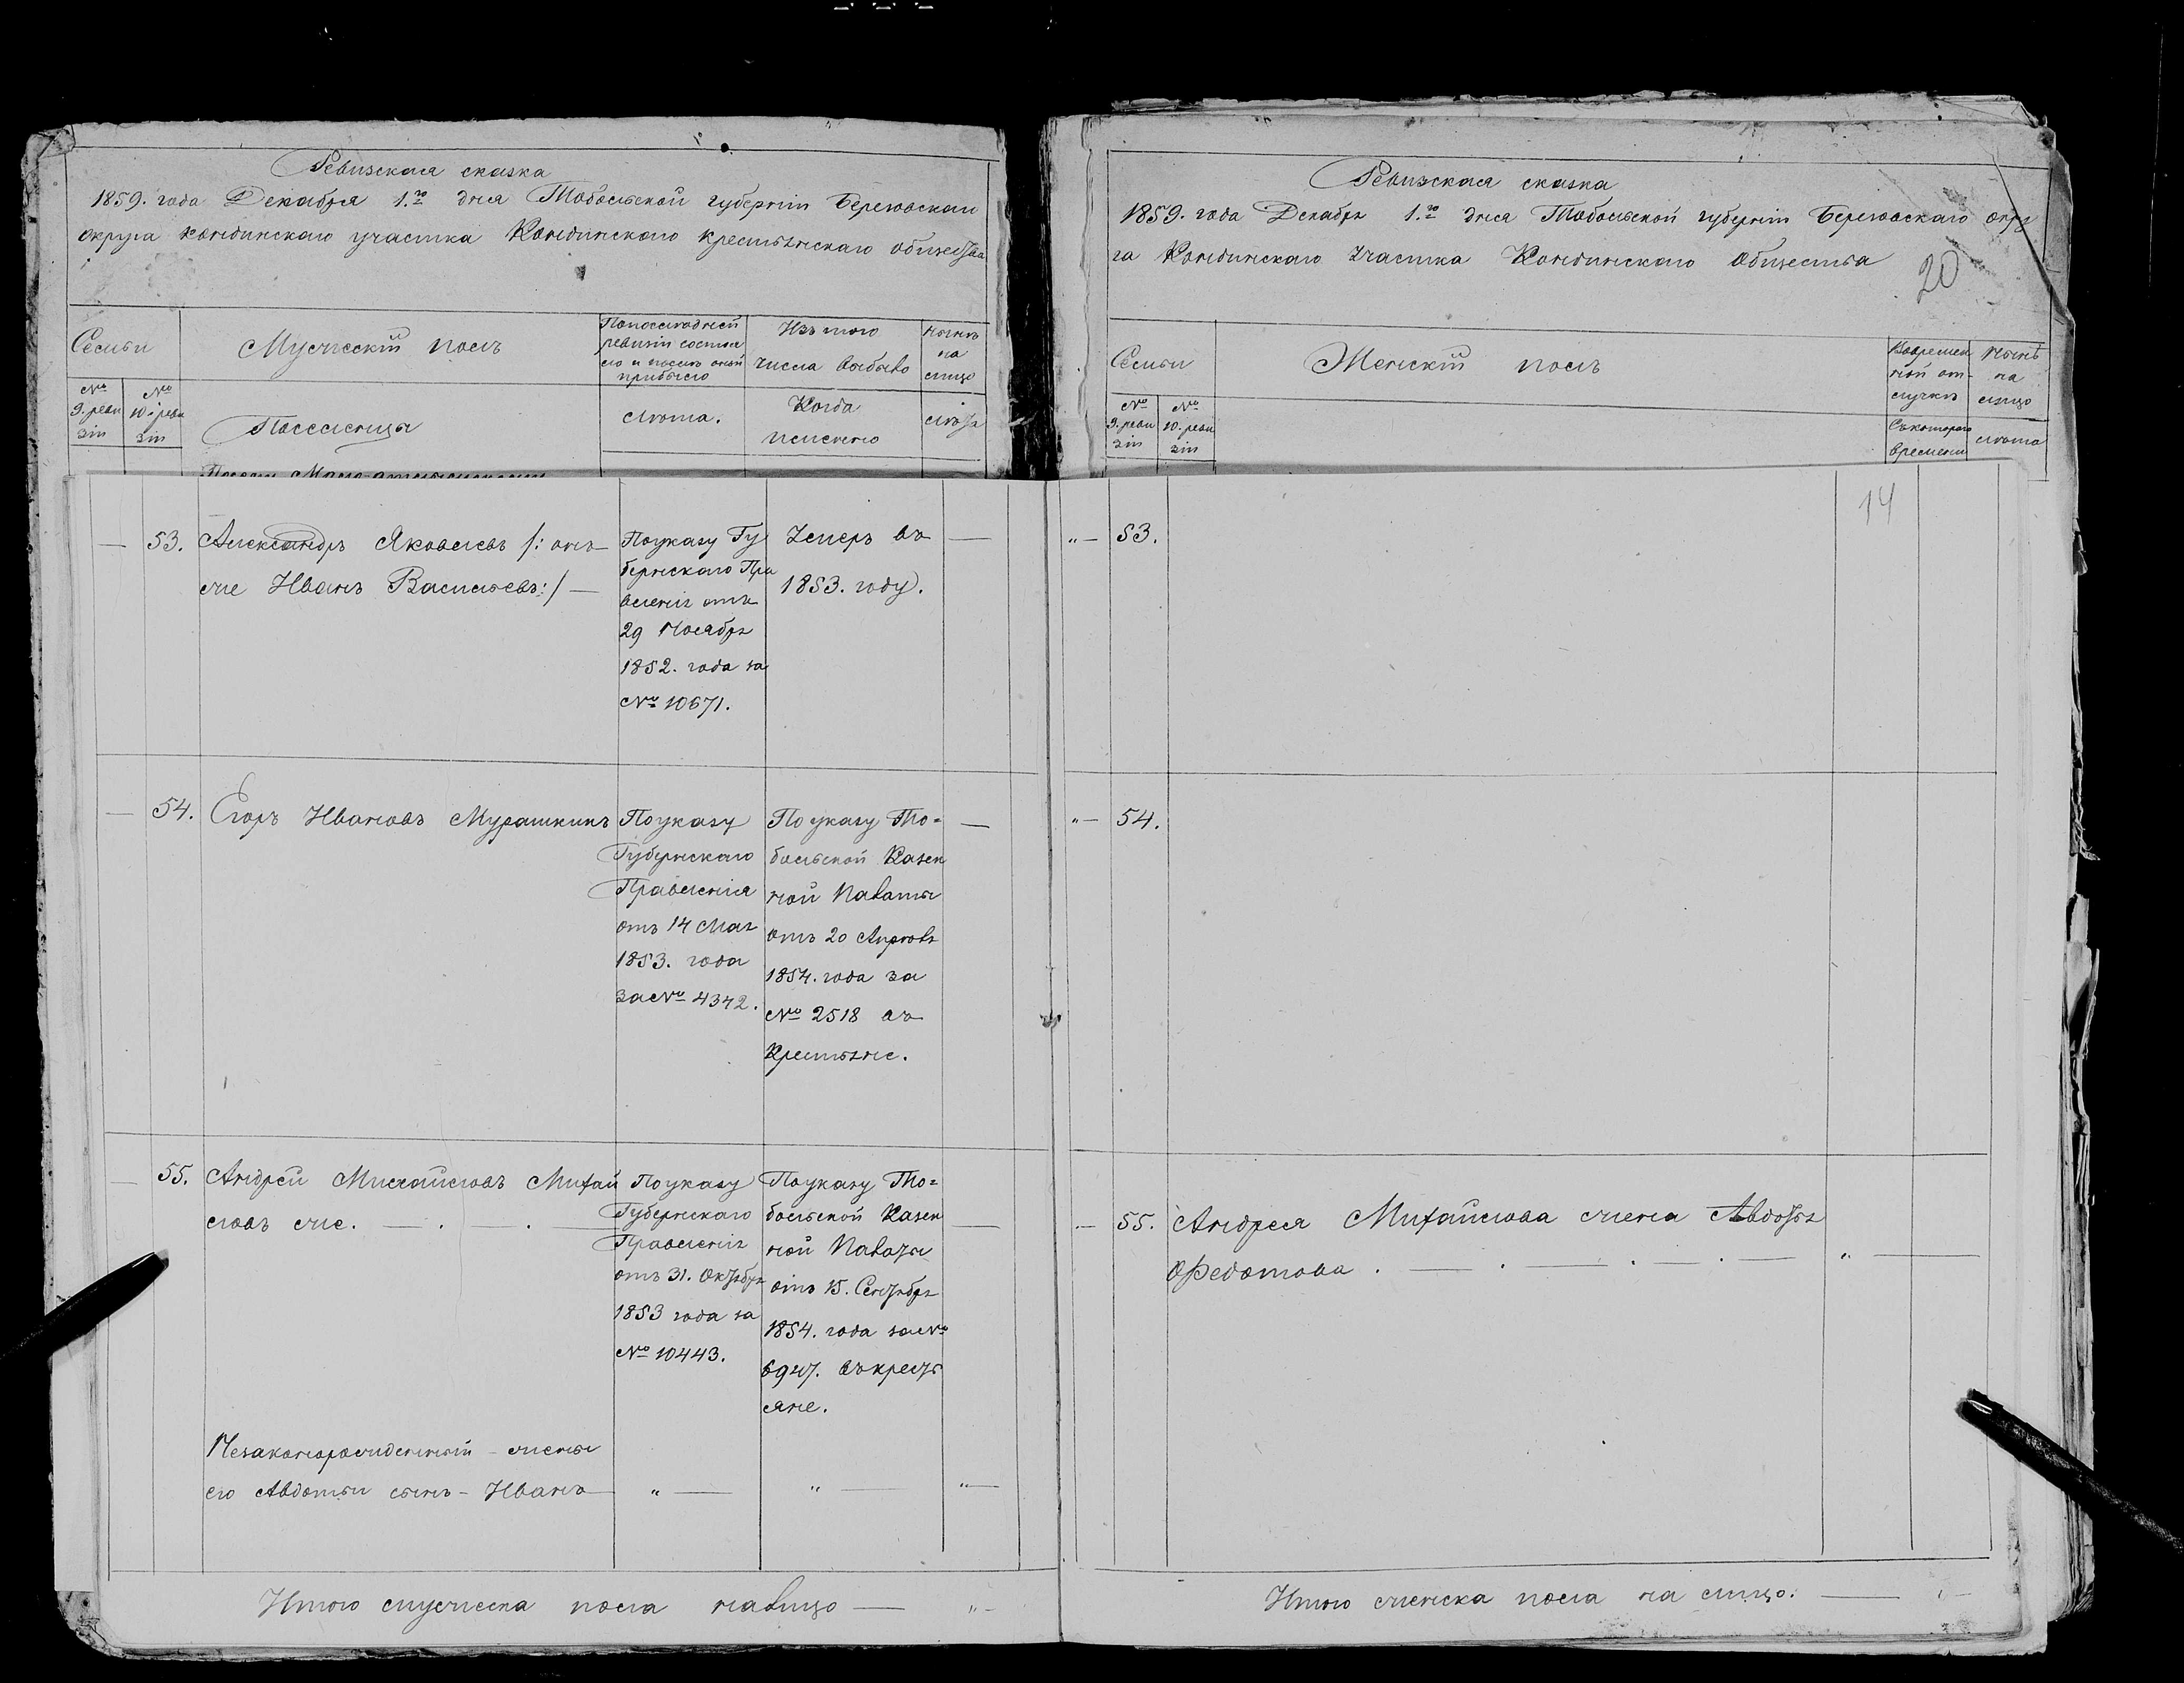 Ревизская сказка
1859. года Декабря 1.го дня Тобольской губерніи Березовскаго
округа кондинскаго участка Кондинскаго крестьянскаго общества
Семьи
Мужескій полъ
По последней
ревизіи состоя
ло и после оной
прибыло
Изъ того
числа выбыло
ныне
на
лицо
№ 9. реви зіи
№ 10. реви зіи
Поселенцы
лѣта.
Когда
именно
лѣта
53. Александръ Яковлевъ /: онъ
же Иванъ Васильевъ:/ —
По указу Гу
бернскаго Пра
вленія отъ
29 Ноября
1852. года за
№ 10671.
Умеръ въ
1853. году.
—
54. Егоръ Ивановъ Мурашкинъ
По указу
Губернскаго
Правленія
отъ 14 Мая
1853. года
за № 4342.
По указу То=
больской Казен
ной Палаты
отъ 20 Апрѣля
1854. года за
№ 2518 въ
Крестьяне.
—
55. Андрей Михайловъ Михай
ловъ же. — . . —
По указу
Губернскаго
Правленія
отъ 31. Октября
1853 года за
№ 10443.
По указу То=
больской Казен
ной Палаты
отъ 15. Сентября
1854. года за №
6947. въ кресть
яне.
—
Незаконорожденный – жены
его Авдотьи сынъ – Иванъ
" — " — " —
Итого мужеска пола налицо — " –
Ревизская сказка
1859. года Декабря 1.го дня Тобольской губерніи Березовскаго окру
га Кондинскаго участка Кондинскаго Общества
20
Семьи
Женскій полъ
Во времен
ной от-
лучкѣ
Нынѣ
на
лицо
№ 9. реви зіи
№ 10. реви зіи
Съ котораго
времени
лѣта
14
" — 53.
" — 54.
— 55. Андрея Михайлова жена Авдотья
Федотова . — . — . — . — " —
Итого женска пола на лицо. —